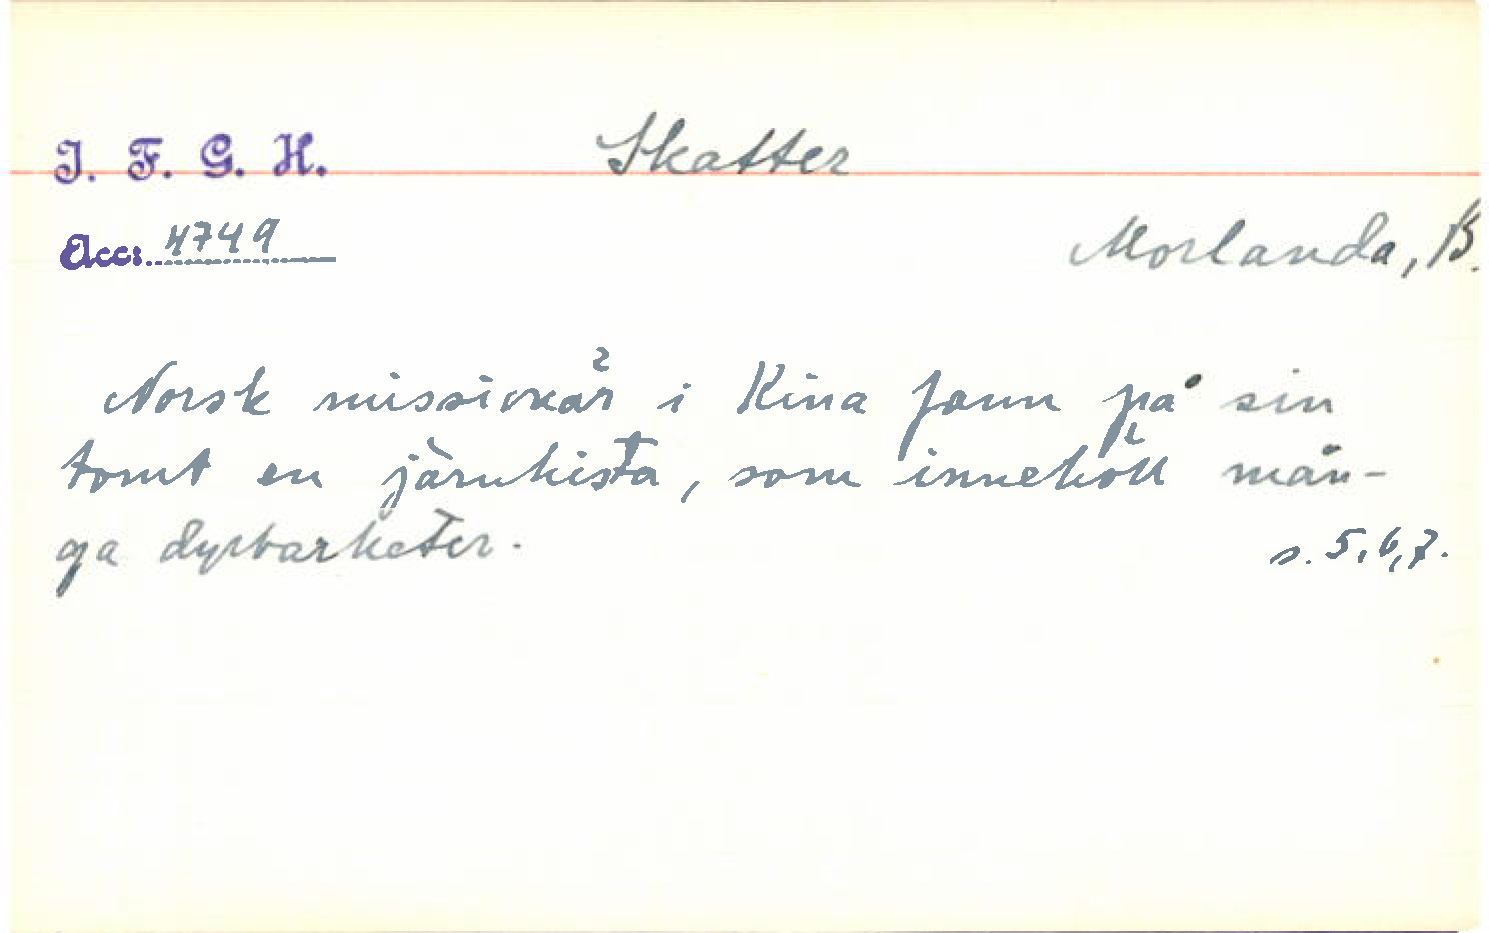 I. F. G. H. Skatter
Acc: 4749 Morlanda, B.
Norsk missionär i Kina fann på sin
tomt en järnkista, som innehöll mån-
ga dyrbarheter. s. 5,6,7.